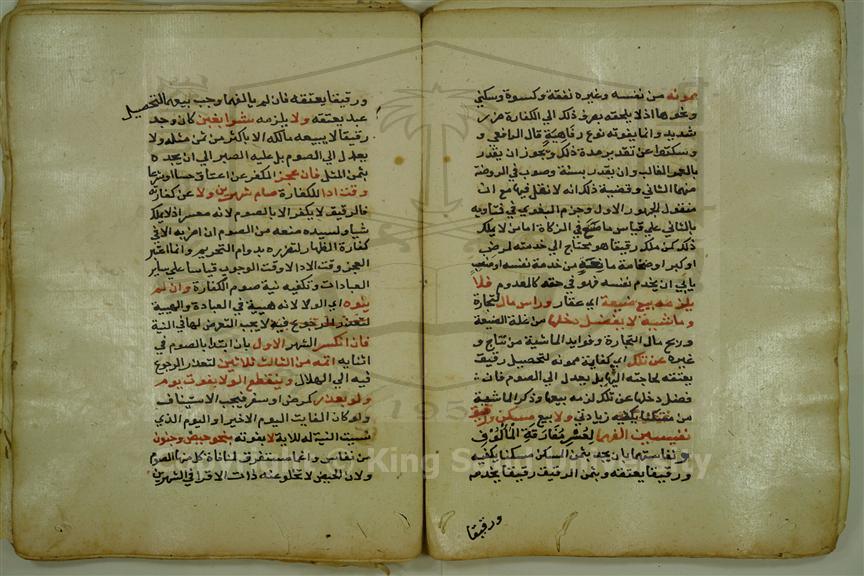 يمونه من نفسه وغيره نفقة وكسوة وسكني
ونحوها اذ لا يلحقه بصرف ذلك الي الكفارة ضرر
شديد وانما يفوته نوع رفاهية قال الرافعي و
وسكتوا عن تقدير مدة ذلك ويجوز ان يقدر
بالعمر الغالب وان يقدر بسنة وصوب في الروضة
منهما الثاني وقضية ذلك انه لا نقل فيها مع ان
منقول الجمهور الاول وجزم البغوي في فتاويه
بالثاني علي قياس ما في الزكاة اما من لا يملك
ذلك كمن ملك رقيقا هو محتاج الي خدمته لمرض
او كبر او ضخامة ما نعة من خدمة نفسه او منصب
يابي ان يخدم نفسه فهو في حقه كالمعدوم فلا
يلزمه بيع ضيعة اي عقار وراس مال لتجارة
وماشية لا يفضل دخلها من غلة الضيعة
وربح مال التجارة وفوايد الماشية من نتاج و
غيره عن تلك اي كفاية ممونه لتحصيل رقيق
يعتقه لحاجته اليها بل يعدل الي الصوم فان
فضل دخلها عن تلك لزمه بيعها وذكر الماشية
من زيادتي ولا بيع مسكن ورقيق
نفيسين الفهما لعسر مفارقة المألوف
ونفاستهما بان يجد بثمن المسكن مسكنا يكفيه
ورقيقا يعتقه وبثمن الرقيق رقيقا يخدمه
ورقيقا
ورقيقا يعتقه فان لم يالفهما وجب بيعهما لتحصيل
عبد يعتقه ولا يلزمه شرا بغبن كان وجد
رقيقا لا يبيعه مالكه الا باكثر من ثمن مثله ولا
يعدل الي الصوم بل عليه الصبر الي ان يجده
بثمن المثل فان عجز المكفر عن اعتاق حسا او شرعا
وقت ادا للكفارة صام شهرين ولا عن كفارة
فالرقيق لا يكفر الا بالصوم لانه معسر اذ لا يملك
شيا وليسيده منعه من الصوم ان اضر به الا في
كفارة الظهار لتضرره بدوام التحريم وانما اعتبر
العجز وقت الادا لا وقت الوجوب قياسا علي ساير
العبادات وتكفيه نية صوم الكفارة وان لم
ينوه اي الولا لانه هيئة في العبادة والهيئة
لا يجب التعرض لها في النية
فان انكسر الشهر الاول بان ابتدا بالصوم في
اثنايه اتمه من الثالث ثلاثين لتعذر الرجوع
فيه الي الهلال وينقطع الولا بفوت يوم
ولو بعذر كمرض او سفر فيجب الاستيناف
ولو كان الفايت اليوم الاخير او اليوم الذي
نسيت النية له للاية لا بفوته بنحو حيض وجنون
من نفاس واغما مستغرق لمنافاة كل منها الصوم
ولان الحيض لا تخلو عنه ذات الاقرا في الشهرين